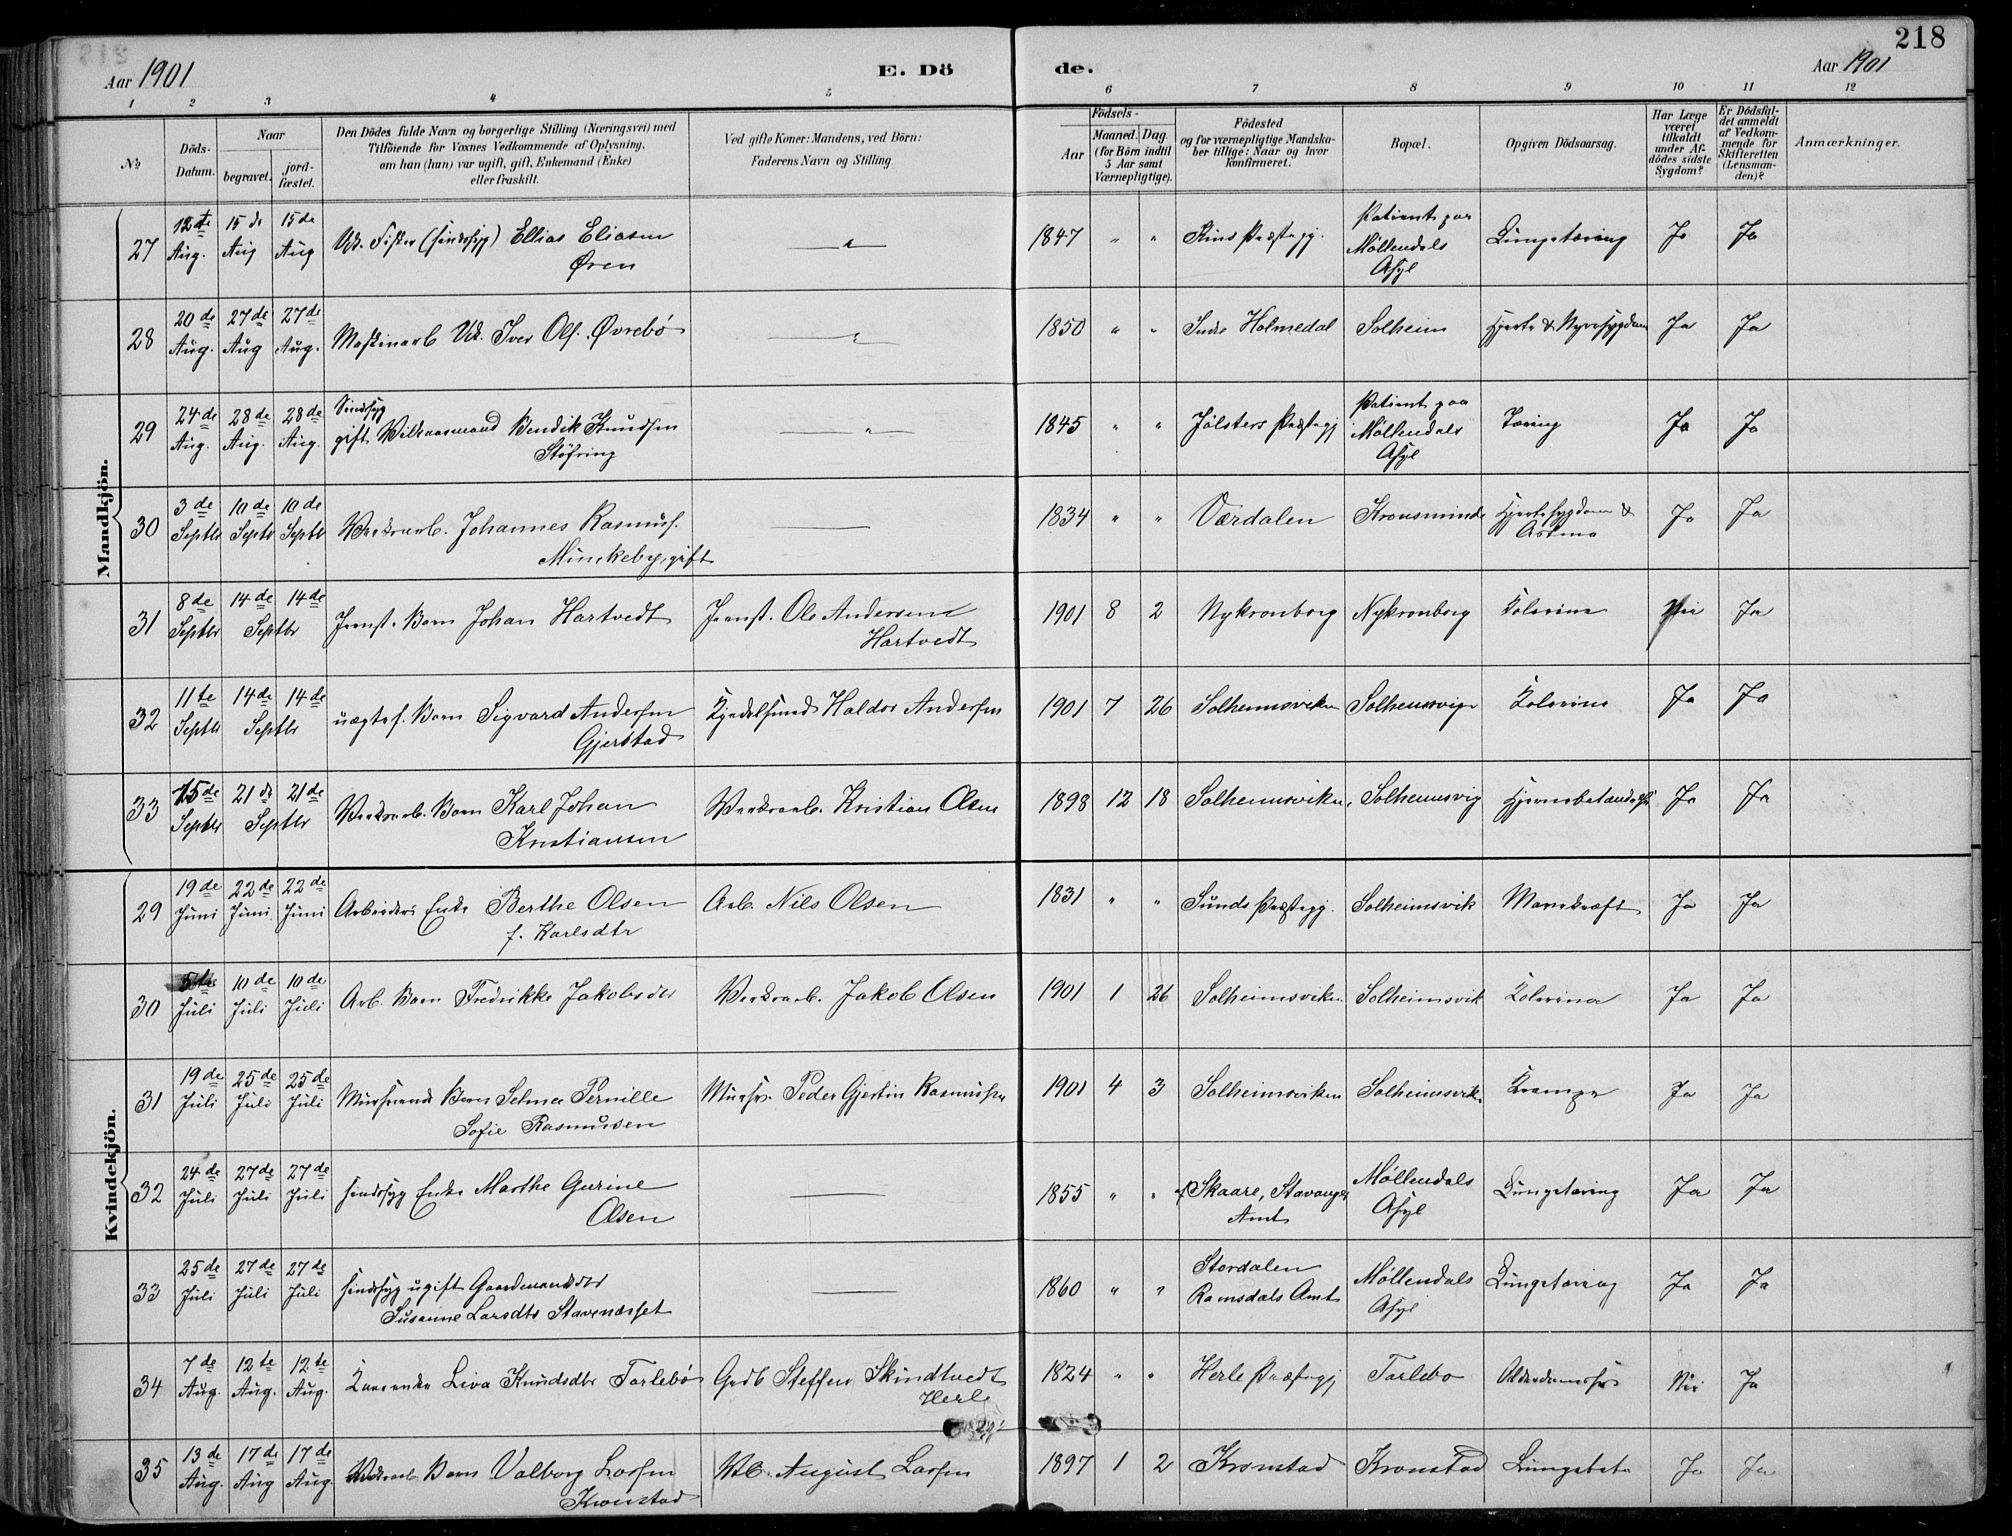 218
Aar 1901
E. Dö
de.
Aar 1901
1 2 3 4 5 6 7 8 9 10 11 12
№
Döds-
Datum.
Naar
begravet.
jord-
fæstet.
Den Dödes fulde Navn og borgerlige Stilling (Næringsvei) med
Tilföiende for Voxnes Vedkommende af Oplysning,
om han (hun) var ugift, gift, Enkemand (Enke)
eller fraskilt.
Ved gifte Koner: Mandens, ved Börn:
Faderens Navn og Stilling.
Födsels-
Aar
Maaned.
Dag.
(for Börn indtil
5 Aar samt
Værnepligtige).
Födested
og for værnepligtige Mandska-
ber tillige: Naar og hvor
konfirmeret.
Bopæl.
Opgiven Dödsaarsag.
Har Læge
været
tilkaldt
under Af-
dödes sidste
Sygdom?
Er Dödsfal-
det anmeldt
af Vedkom-
mende for
Skifteretten
(Lensman-
den)?
Anmærkninger.
Mandkjön.
27 12te Aug. 15de Aug 15de Aug Fisker (sindssyg) Ellias Eliasen 1847 " " Præstegj. Patient paa Lungetæring Ja Ja
Øren Möllendals
Asyl
28 20de Aug. 27de Aug 27de Aug. Maskinarb. Iver Ols. Øvrebö 1850 " " Indre Holmedal Solheim Hjerte & Nyresygdom Ja Ja
29 24de Aug. 28de Aug. 28de Aug. Sindssyg 1845 " " Jölsters Præstegj Patient paa Tæring Ja Ja
gift Bendik Knudsen Möllendals
Støfring Asyl
30 3de Septbr 10de Septbr 10de Septbr Værksarb. Johannes Rasmus. 1834 " " Værdalen Kronsminde Hjertesygdom & Ja Ja
Minskeby, gift Astma
31 8de Septbr 14de 14de Septbr Jernst. Barn Johan Hartvedt Jernst. Ole Andersen 1901 8 2 Nykronborg Nykronborg Kolerine Nei Ja
Hartvedt
32 11te Septbr 14de 14de Septbr uægtef. Barn Sigvard Andersen Kjedelsmed Haldor Andersen 1901 7 26 Solheimsviken Solheimsvig Kolerine Ja Ja
Gjerstad
33 15de Septbr 21de 21de Septbr Værksarb. Barn Karl Johan Værksarb. Kristian Olsen 1898 12 18 Solheimsviken, Solheimsvig Hjernebetændelse Ja Ja
Kristiansen
Kvindekjön.
29 19de Juni 22de Juni 22de Juni Arbeiders Enke Berthe Olsen Arb. Nils Olsen 1831 " " Sunds Præstegj. Solheimsvik Mavekræft Ja Ja
f. Karlsdtr
30 5te Juli 10de Juli 10de Juli Arb. Barn Fredrikke Jakobsdtr Værksarb. Jakob Olsen 1901 1 26 Solheimsviken Solheimsvik Kolerine Ja Ja
31 19de Juli 25de Juli 25de Juli Mursvends Barn Selma Pernille Mursv. Peder Gjertin Rasmussen 1901 4 3 Solheimsviken Solheimsvik Krampe Ja Ja
Sofie Rasmussen
32 24de Juli 27de Juli 27de Juli sindssyg Enke Marthe Gurine 1855 " " Skaare, Stavanger Möllendals Lungetæring Ja Ja
Olsen Amt Asyl
33 25de Juli 27de Juli 27de Juli sindssyg ugift Gaardmandsdtr 1860 " " Stordalen Möllendals Lungetæring Ja Ja
Susanne Larsdtr Stavenæsset Romsdals Amt Asyl
34 7de Aug. 12te Aug. 12te Aug. Liva Knudsdtr Tarlebø Steffen Skindtvedt 1824 " " Herle Præstegj Tarlebø Nei Ja
Herle
35 13de Aug. 17de Aug 17de Aug. Værksarb. Barn Valborg Larsen August Larsen 1897 1 2 Kronstad Kronstad Lungebet. Ja Ja
Kronstad